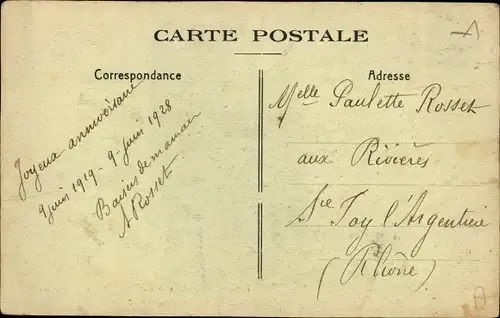 CARTE POSTALE
Correspondance
Joyeux anniversaire
9 juin 1919 - 9 juin 1928
Baisers de maman
A Rosset
Adresse
Melle Paulette Rosset
aux Rivières
Ste Foy l'Argentière
(Rhône)